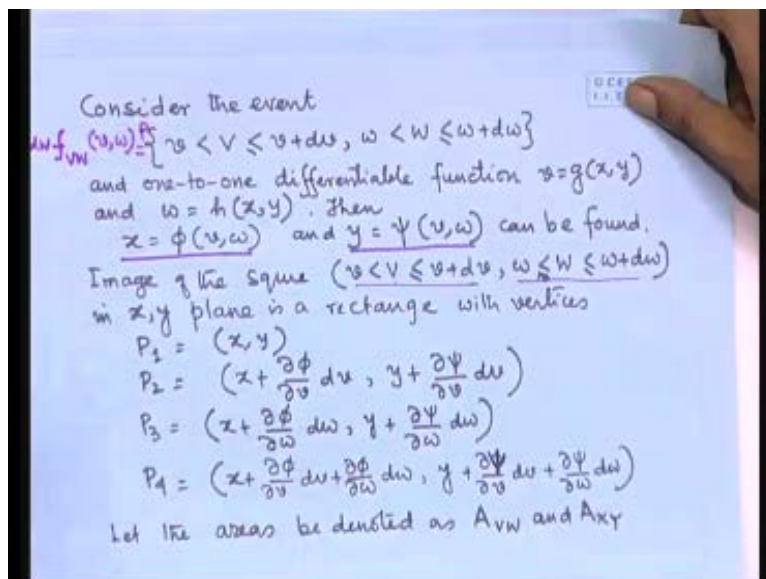 Consider the event
f_VW (v,w) = P{ v < V ≤ v+dv, w < W ≤ w+dw}
and one-to-one differentiable function v=g(x,y)
and w = h(x,y). Then
x = ϕ(v,w) and y = ψ(v,w) can be found.
Image of the squre (v<V ≤ v+dv, w ≤ W ≤ w+dw)
in x,y plane is a rectange with vertices
P₁ = (x,y)
P₂ = (x + ∂ϕ/∂v dv, y + ∂ψ/∂v dv)
P₃ = (x + ∂ϕ/∂w dw, y + ∂ψ/∂w dw)
P₄ = (x + ∂ϕ/∂v dv + ∂ϕ/∂w dw, y + ∂ψ/∂v dv + ∂ψ/∂w dw)
Let the areas be denoted as A_VW and A_XY